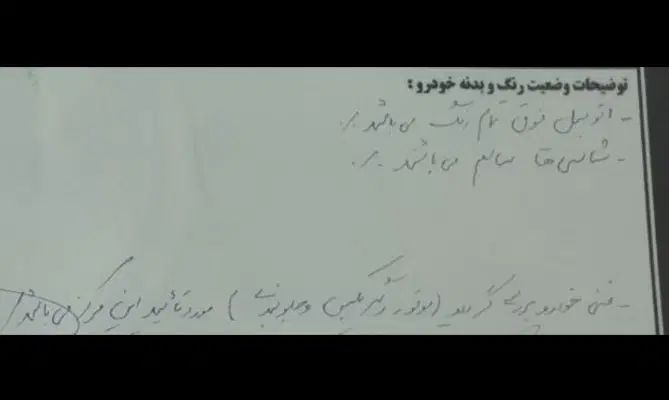 توضیحات وضعیت رنگ و بدنه خودرو :
- اتومبیل فوق تمام رنگ می باشد .
- شاسی ها سالم می باشند .
- فنی خودرو بررسی گردید (موتور و گیربکس و جلوبندی) مورد تأیید این مرکز می باشد